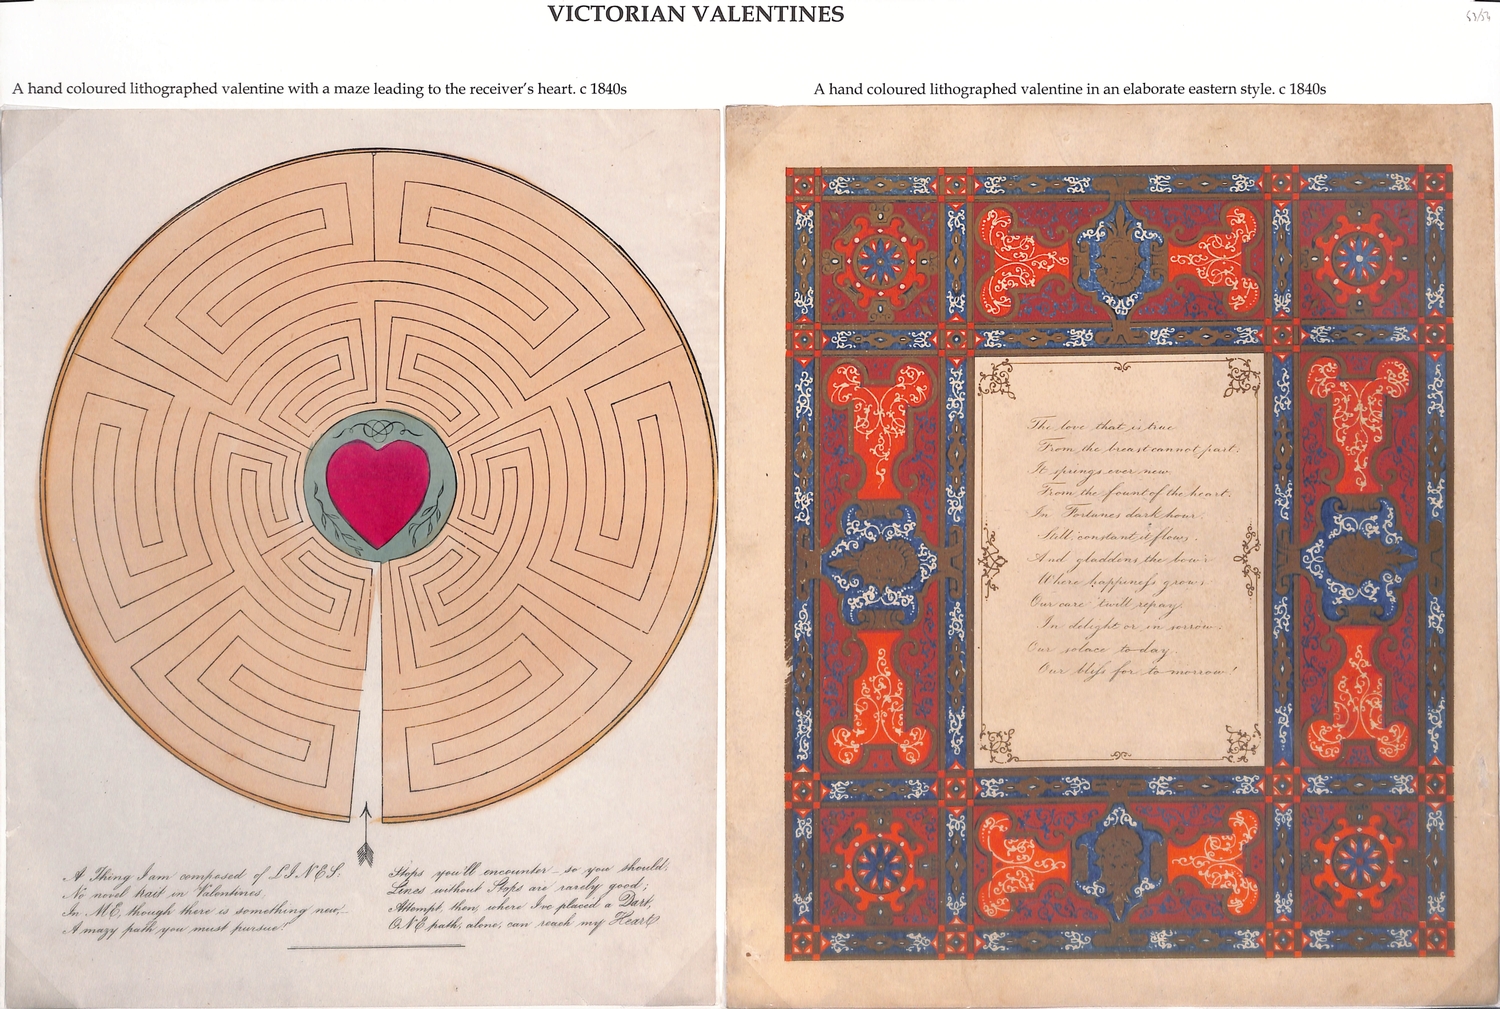 VICTORIAN VALENTINES
A hand coloured lithographed valentine with a maze leading to the receiver's heart. c 1840s
A Thing I am composed of LINES,
No novel tract in Valentines.
In ME, though there is something new,—
A mazy path you must pursue!
Stops you'll encounter — so you should;
Lines without Stops are rarely good;
Attempt, then, where I've placed a Dart,
ONE path, alone, can reach my Heart
A hand coloured lithographed valentine in an elaborate eastern style. c 1840s
The love that is true
From the breast cannot part,
It springs ever new
From the fount of the heart.
In Fortunes dark hour
Still constant it flows
And gladdens the bow'r
Where happiness grows
Our care 'twill repay
In delight or in sorrow
Our solace to day
Our bliss for to morrow!